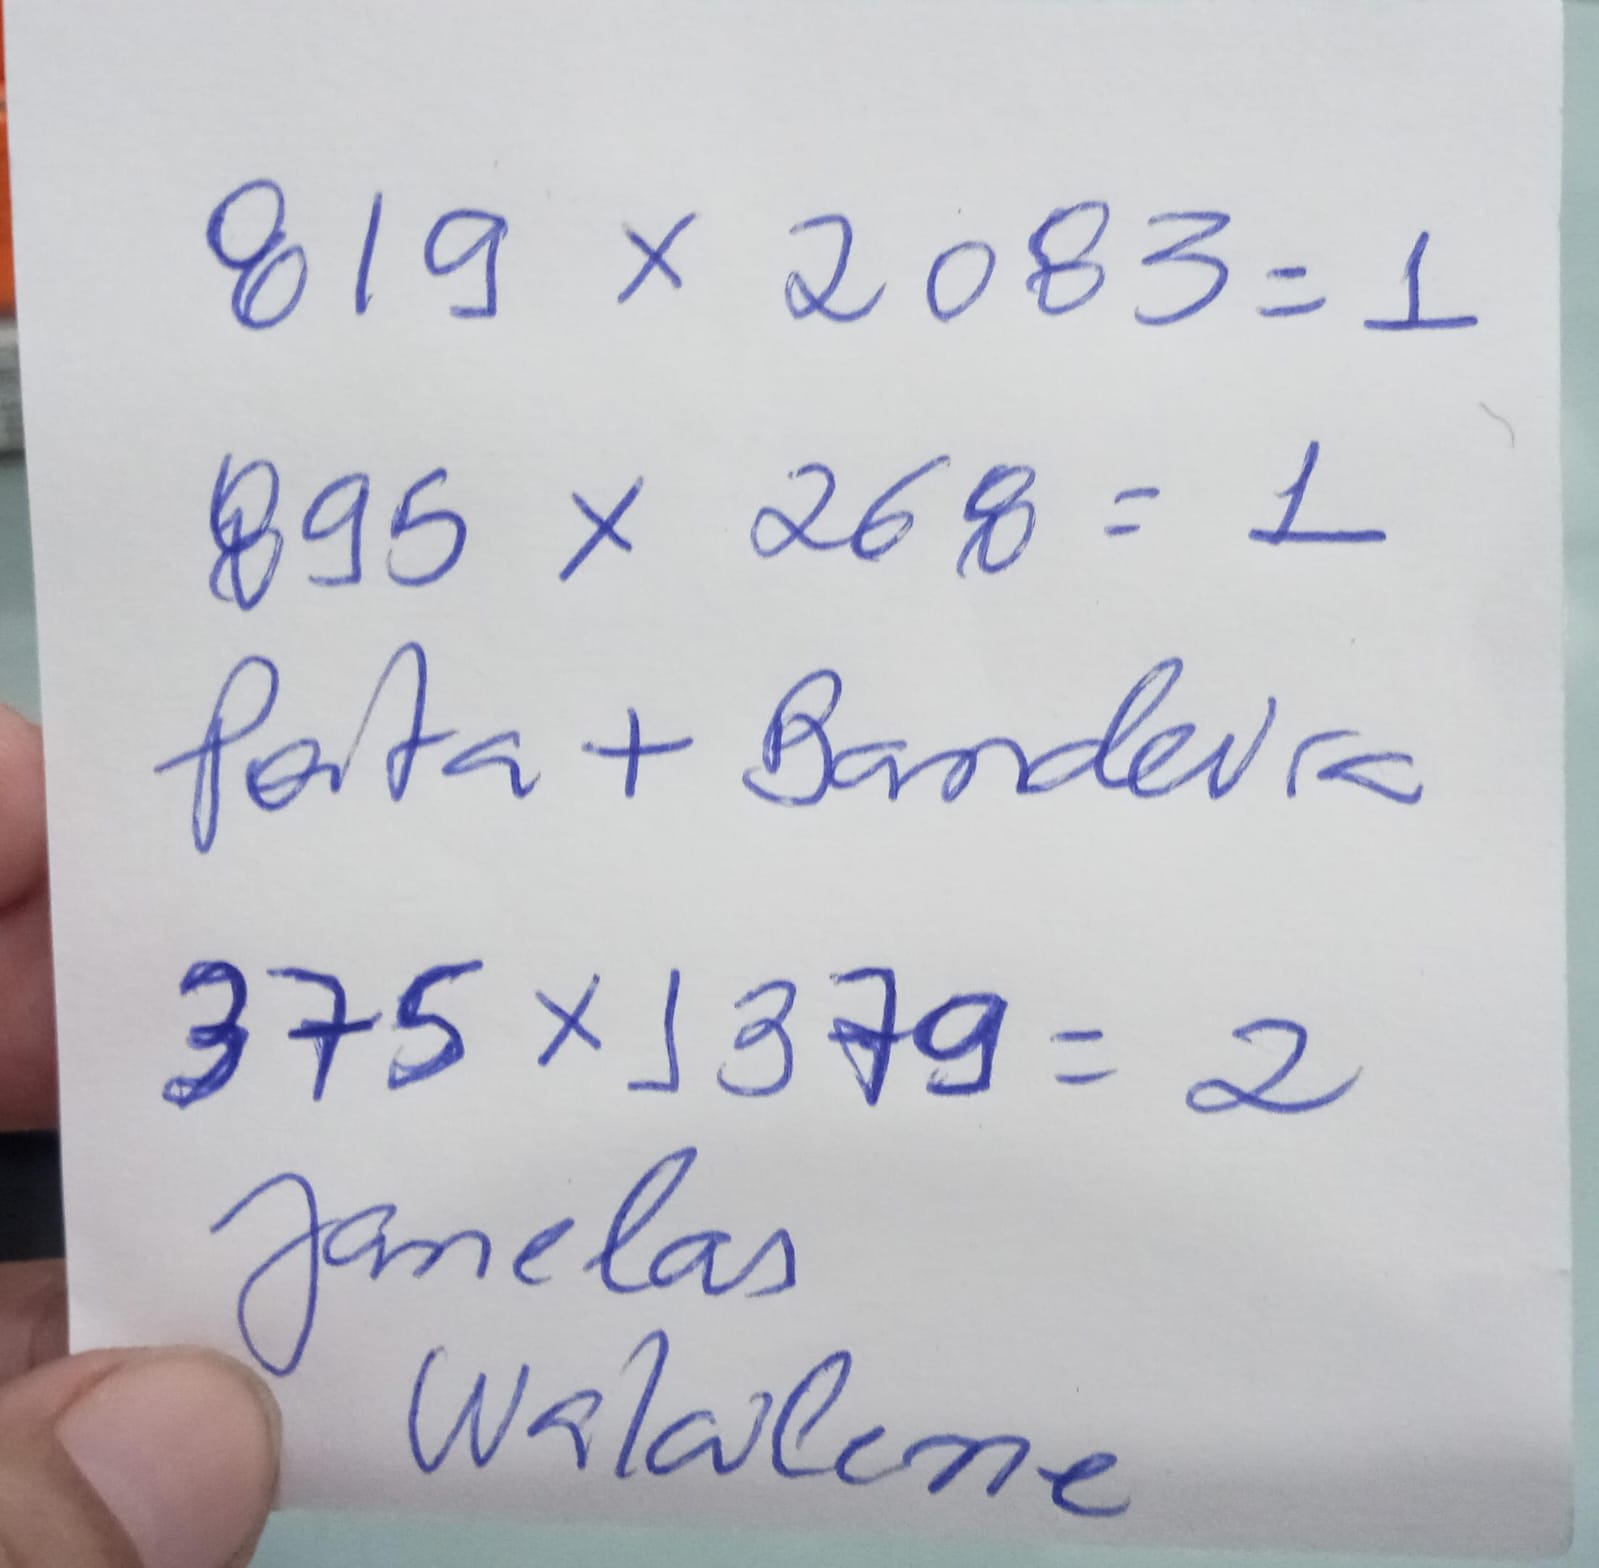 819 x 2083 = 1
895 x 268 = 1
Porta + Bandeira
375 x 1379 = 2
Janelas